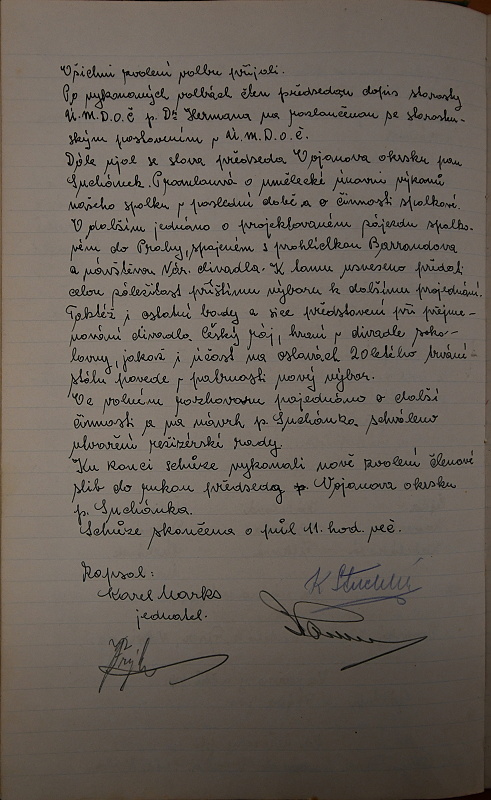 Všichni zvolení volbu přijali.
Po vykonaných volbách čten předsedou dopis starosty
Ú.M.D.O.Č p. Dr Hermana na rozloučenou se starosten-
ským postavením v Ú.M.D.O.Č.
Dále ujal se slova předseda Vojanova okrsku pan
Suchánek. Promlouvá o umělecké úrovni výkonů
našeho spolku v poslední době a o činnosti spolkové.
V dalším jednáno o projektovaném zájezdu spolko-
vém do Prahy, spojeném s prohlídkou Barrandova
a návštěvou Nár. divadla. K tomu usneseno předati
celou záležitost příštímu výboru k dalšímu projednání.
Taktéž i ostatní body a sice představení při přejme-
nování divadla Český ráj, hraní v divadle soko-
lovny, jakož i účast na oslavách 20letého trvání
státu povede v patrnosti nový výbor.
Ve volném rozhovoru pojednáno o další
činnosti a na návrh p. Suchánka schváleno
utvoření režisérské rady.
Ku konci schůze vykonali nově zvolení členové
slib do rukou předsedy Vojanova okrsku
p. Suchánka.
Schůze skončena o půl 11. hod. več.
Zapsal:
Karel Marks
jednatel.